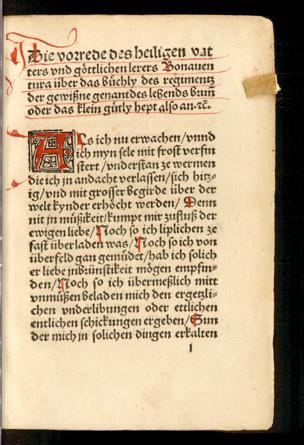 Die vorrede des heiligen vat
ters vnd göttlichen lerers Bonauen
tura über das büchly des regimentz
der gewißne genant des lebends brun
oder das klein gütly hept also an. ꝛc.
Als ich nu erwachen / vnnd
ich myn sele mit frost verfin
stert / vnderstan ze wermen
die ich in andacht verlassen / sich hitz-
ig / vnd mit grosser begirde über der
welt kynder erhöcht werden / Denn
nit in müßikeit / kumpt mit zufluß der
ewigen liebe / Noch so ich liplichen ze
fast überladen was / Noch so ich von
überfeld gan gemüdet / hab ich solich
er liebe inbrünstikeit mögen empfin-
den / Noch so ich übermeßlich mitt
vnmüßen beladen mich den ergetzli-
chen vnderlibungen oder ettlichen
entlichen schickungen ergeben / Sun
der mich in solichen dingen erkalten